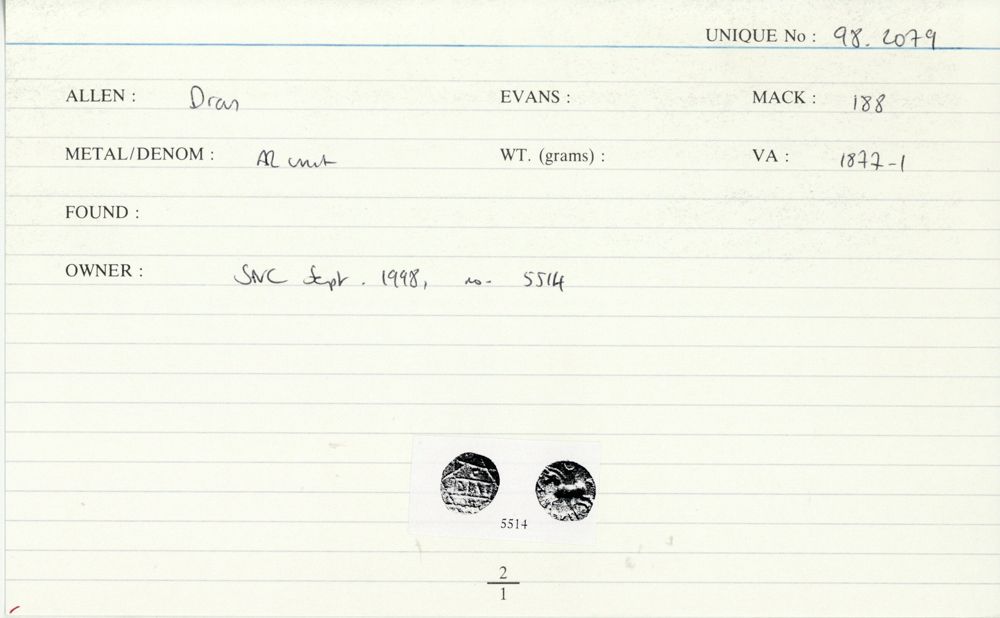 UNIQUE No : 98. 2079
ALLEN : Dras EVANS : MACK : 188
METAL/DENOM : AR unit WT. (grams) : VA : 1877-1
FOUND :
OWNER : SNC Sept. 1998, no. 5514
5514
2
1